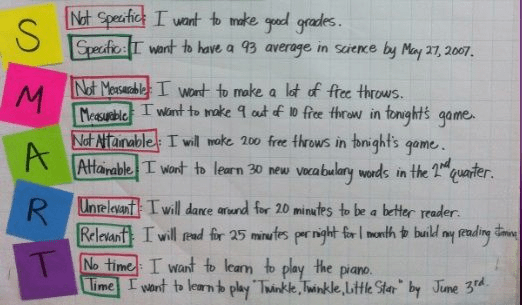 S
Not Specific: I want to make good grades.
Specific: I want to have a 93 average in science by May 27, 2007.
M
Not Measurable: I want to make a lot of free throws.
Measurable: I want to make 9 out of 10 free throw in tonight's game.
A
Not Attainable: I will make 200 free throws in tonight's game.
Attainable: I want to learn 30 new vocabulary words in the 2nd quarter.
R
Unrelevant: I will dance around for 20 minutes to be a better reader.
Relevant: I will read for 25 minutes per night for 1 month to build my reading
T
No time: I want to learn to play the piano.
Time: I want to learn to play "Twinkle, Twinkle, Little Star" by June 3rd.